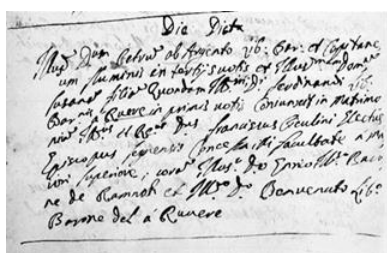 Die Dicta
Illus. Dum Petrus ab Argento lib. Bar. et Capitane
um fluminis in tertijs votis et Illus. Dam
Susanā filiā Quondam Illmi Di ferdinandi lib.
Baronis Ruere in primis votis coniunxit in matrimo
niū Illmus et Rs Dns franciscus Peulini Electus
Episcopus concessa facultate a
ioni superiore, corā Illus. Do Enrico lib. Baro
ne de Raunoh et Illmo Do Benvenuto lib.
Barone del a Ruuere